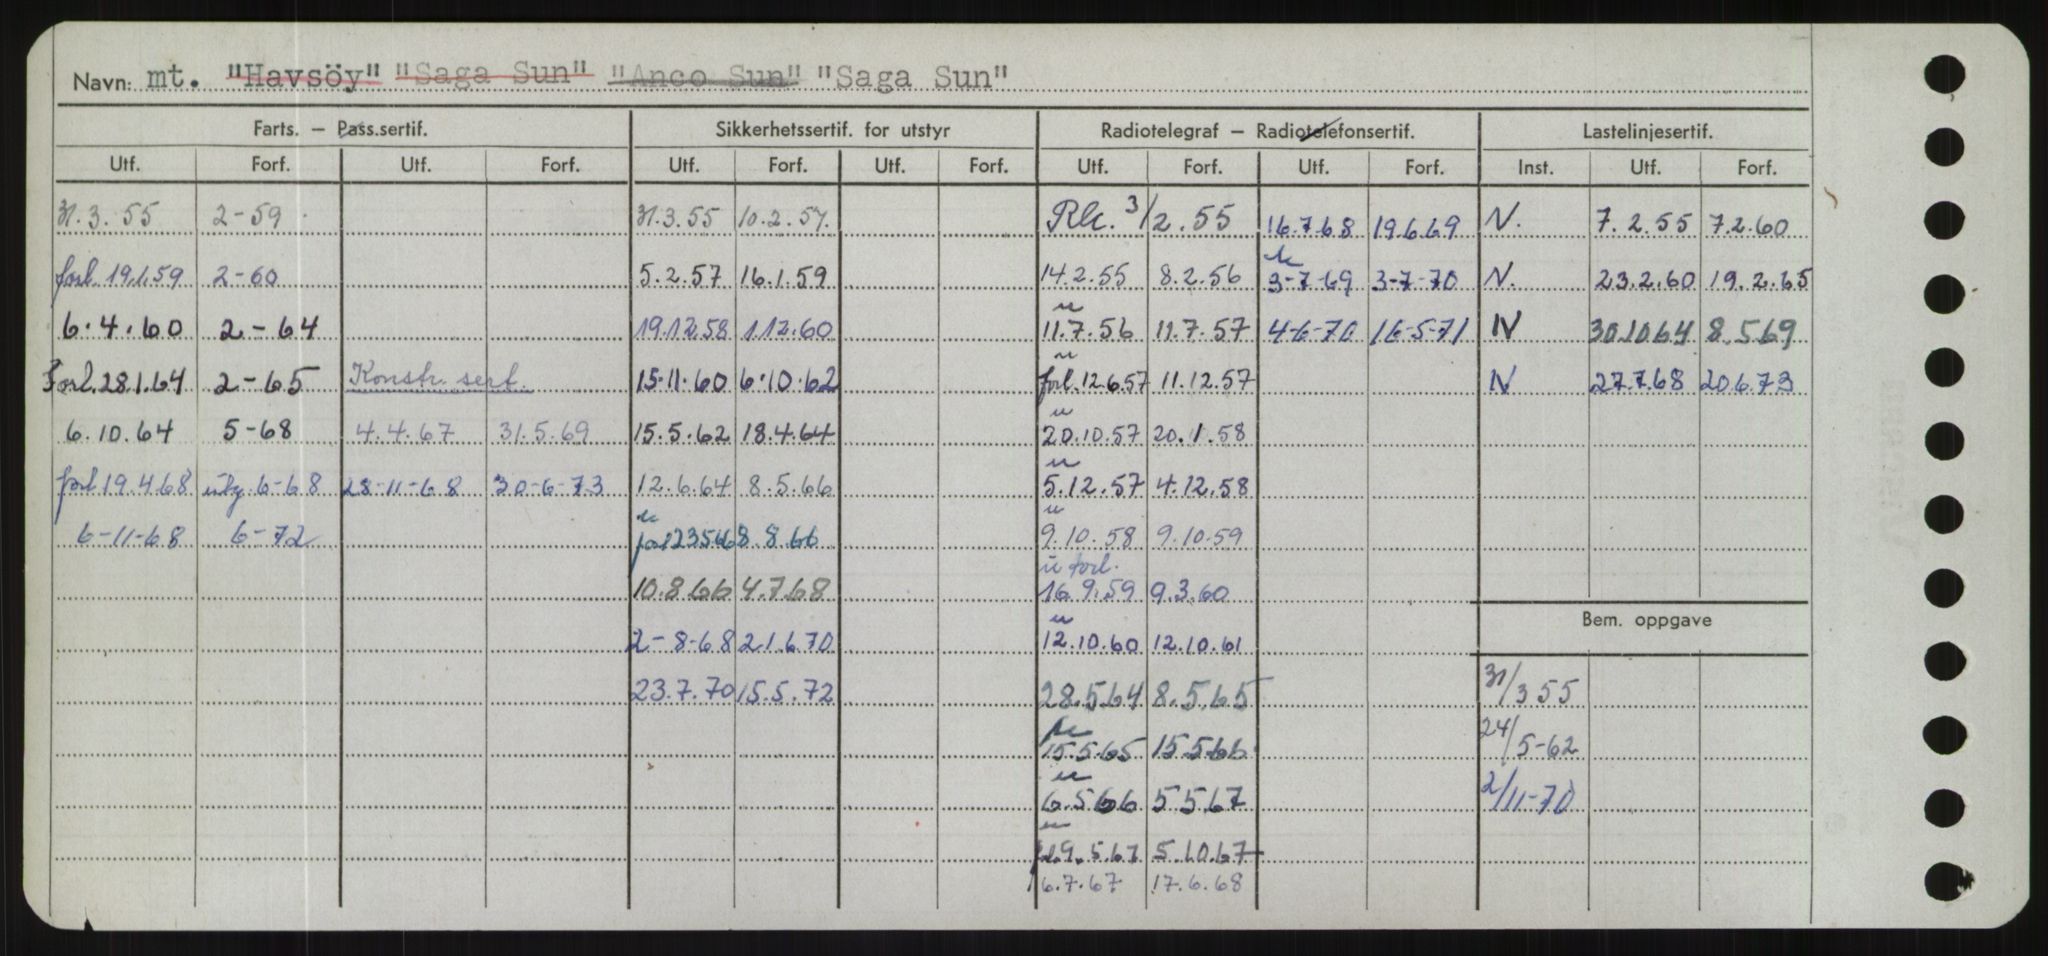 Navn: mt. "Havsöy" "Saga Sun" "Anco Sun" "Saga Sun"
Farts. – Pass.sertif. Sikkerhetssertif. for utstyr Radiotelegraf – Radiotelefonsertif. Lastelinjesertif.
Utf. Forf. Utf. Forf. Utf. Forf. Utf. Forf. Utf. Forf. Utf. Forf. Inst. Utf. Forf.
31.3.55 2-59 31.3.55 10.2.57. Rk. 3/2.55 16.7.68 19.6.69 N. 7.2.55 7.2.60
forl. 19.1.59 2-60 5.2.57 16.1.59 14.2.55 8.2.56 u 3-7-69 3-7-70 N. 23.2.60 19.2.65
6.4.60 2-64 19.12.58 1.12.60 u 11.7.56 11.7.57 4-6-70 16-5-71 N 30.10.64 8.5.69
Forl. 28.1.64 2-65 Konstr. sert. 15.11.60 6.10.62 u forl. 12.6.57 11.12.57 N 27.7.68 20.6.73
6.10.64 5-68 4.4.67 31.5.69 15.5.62 18.4.64 u 20.10.57 20.1.58
forl 19.4.68 utg. 6-68 28-11-68 30-6-73 12.6.64 8.5.66 u 5.12.57 4.12.58
6-11-68 6-72 u 8.8.66 u 9.10.58 9.10.59
10.8.66 4.7.68 u forl. 16.9.59 9.3.60
2-8-68 21.6.70 u 12.10.60 12.10.61
Bem. oppgave
23.7.70 15.5.72 28.5.64 8.5.65 31/3 55
u 15.5.65 15.5.66 24/5-62
u 6.5.66 5.5.67 2/11-70
u 9.5.67 5.10.67
6.7.67 17.6.68